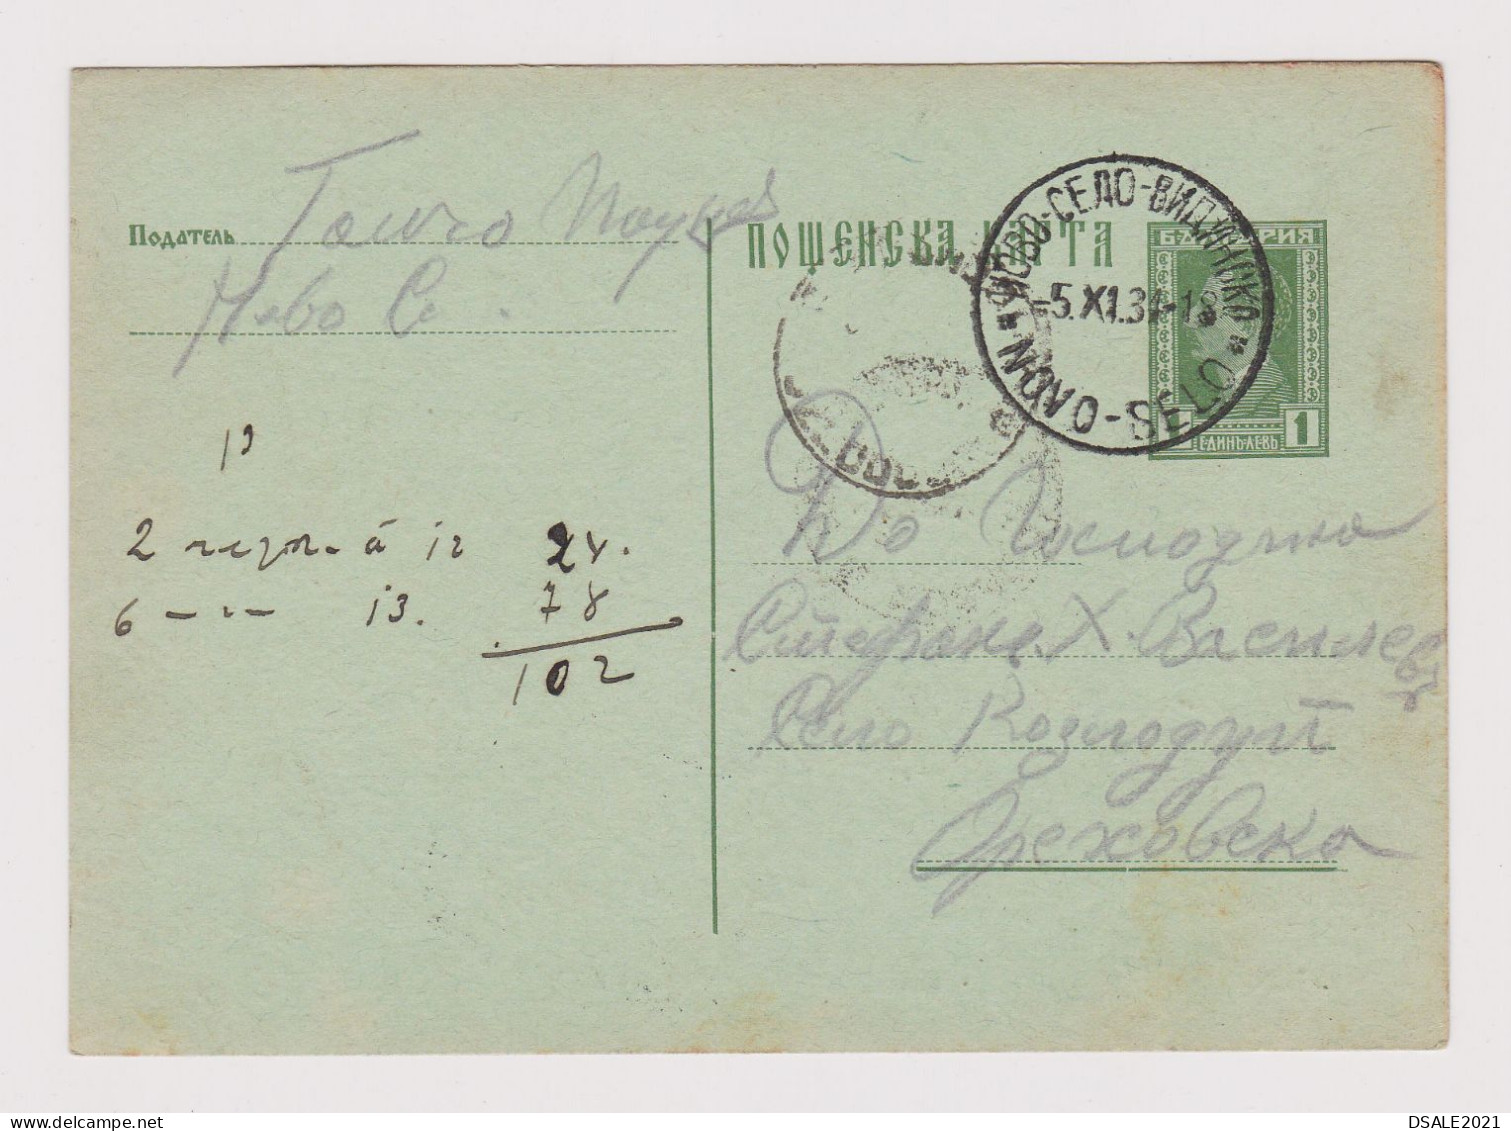 Податель Гошо
Ново С.
ПОЩЕНСКА КАРТА
НОВО-СЕЛО-ВИДИНСКО
-5.XI.31-18
NOVO-SELO
БЪЛГАРИЯ
1 1
ЕДИНЪ ЛЕВЪ
13
2 à 12 24.
6 — " — 13. 78
102
До Господина
Стефанъ Х. Василевъ
Село Козлодуй
Ореховска
DSALE2021